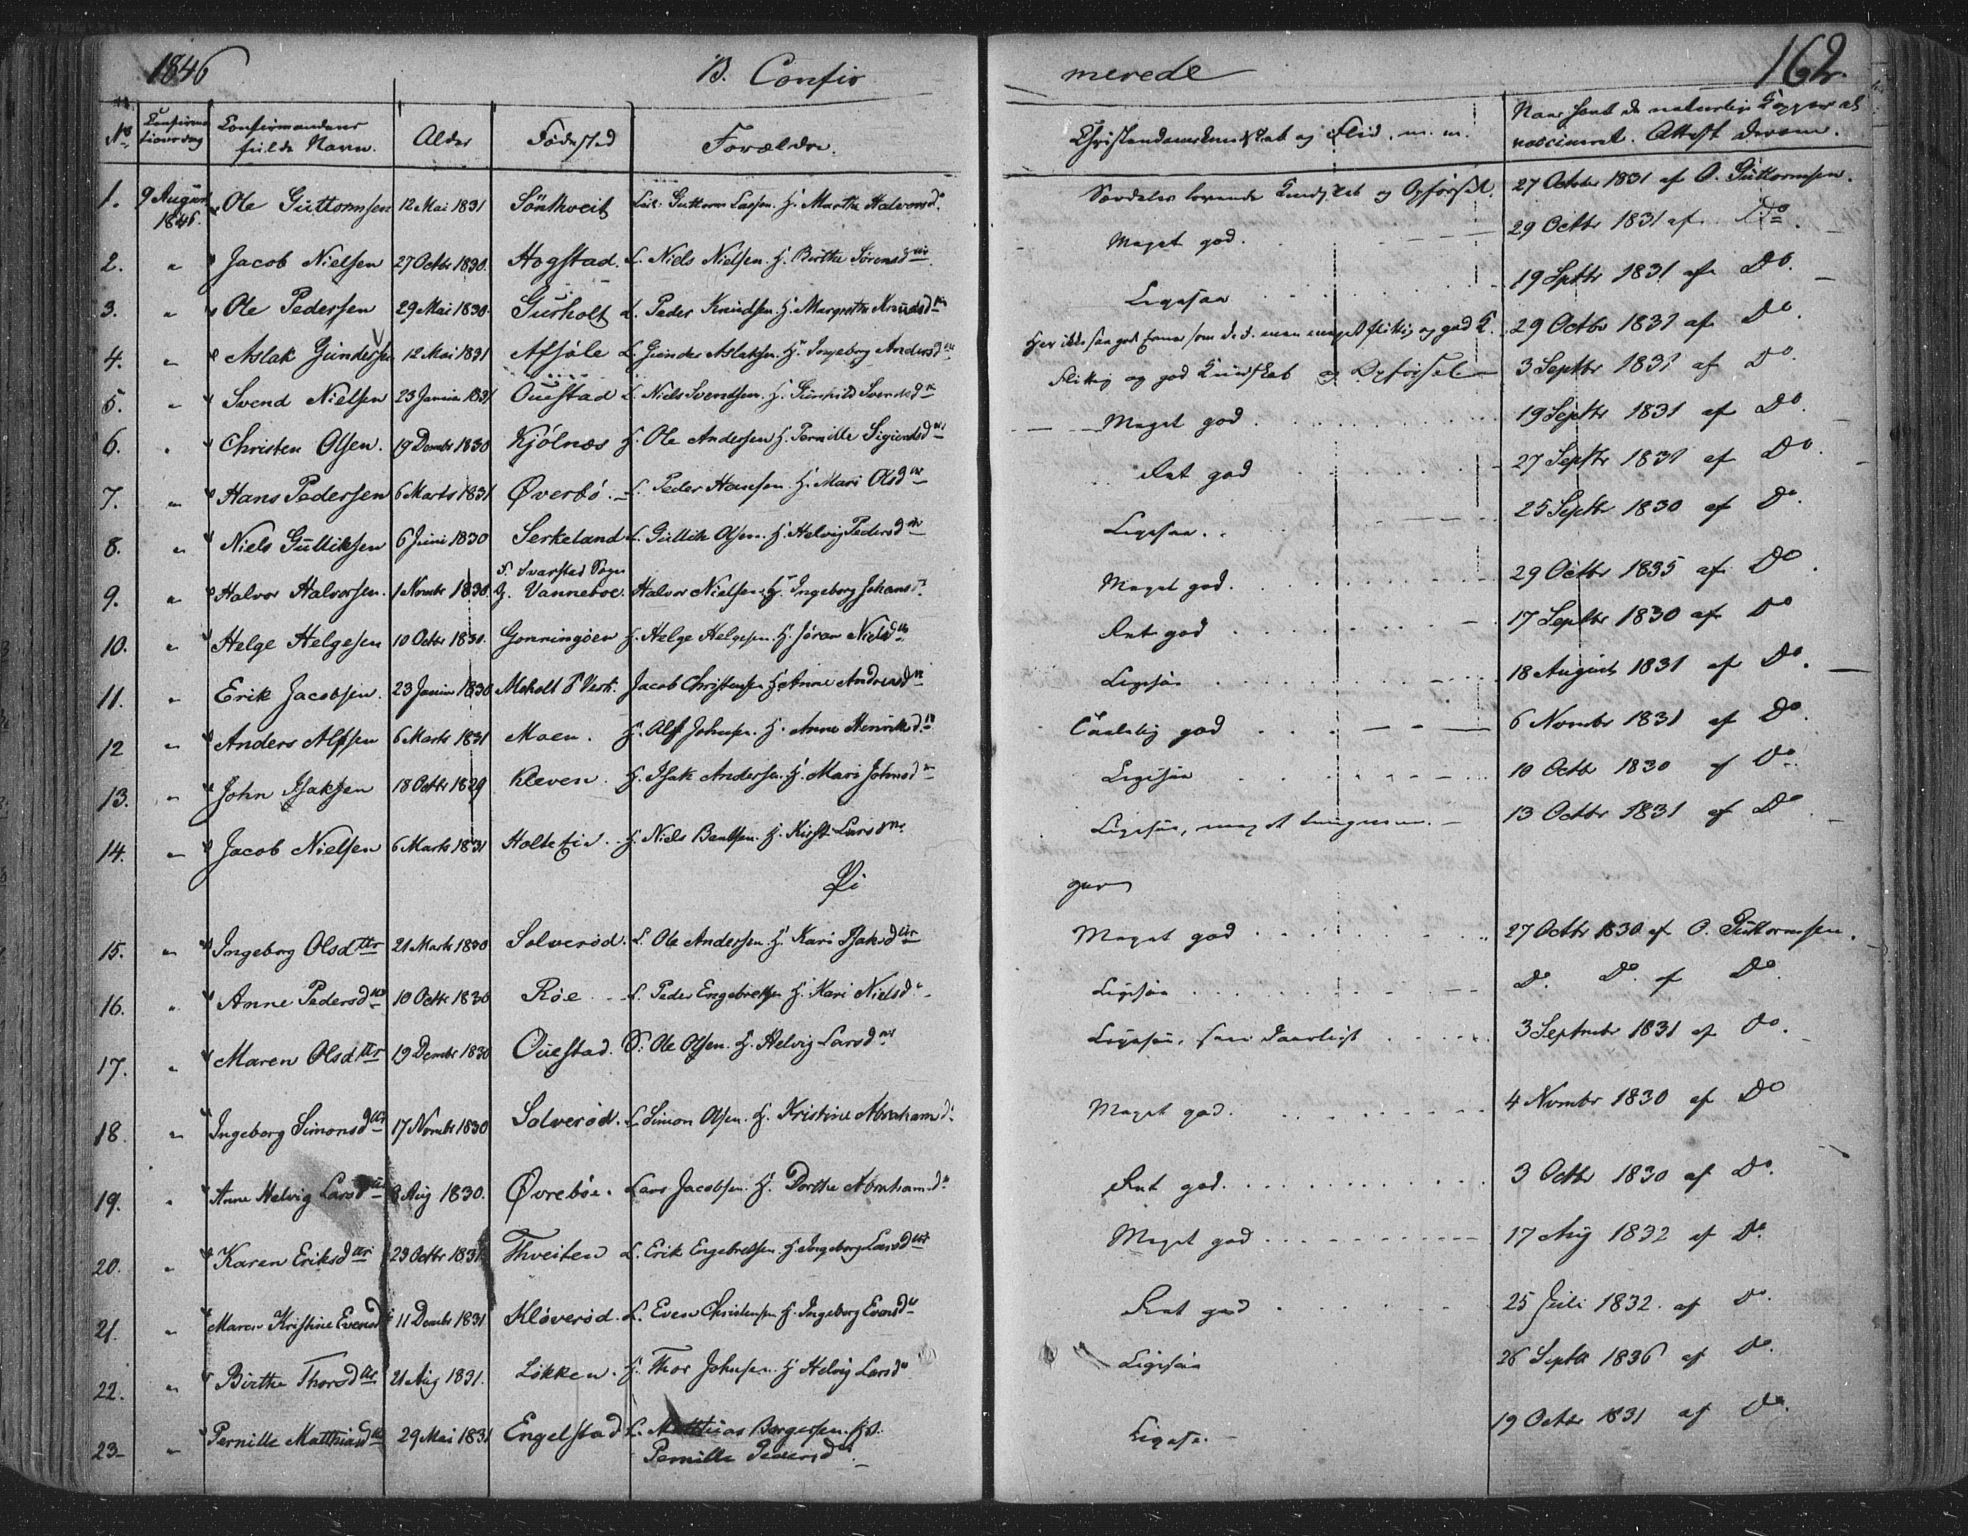 1846 B. Confir merede 162.
No Confirmationsdag Confirmandens fulde Navn. Alder Fødested Forældre. Christendomskundskab og Flid. m. m. Naar havt de naturlige Kopper el. vaccineret. Attest derom.
1. 9 August 1846. Ole Guttormsen 12 Mai 1831 Guttorm H. Marthe Halvorsd. Kundskab og Opførsel. 27 Octobr 1831 af O. Guttormsen.
2. " Jacob Nielsen 27 Octbr 1830. Hogstad. L. Niels Nielsen. H. Birthe Sørensdttr. Meget god. 29 Octbr 1831 af Do
3. " Ole Pedersen 29 Mai 1830. Gurholt L. Peder Knudsen H. Margrethe Knudsdtr Ligesaa 19 Septbr 1831 af Do.
4. " Aslak Gundersen 12 Mai 1831 L. Gunder Aslaksen. H. Ingeborg Andersdtr meget flittig og god K. 29 Octbr 1831 af Do.
5. " Svend Nielsen 23 Januar 1831 Ouestad L. Niels Svendsen. H. Gunhild Svendsdtr Flittig og god Kundskab og Opførsel 3 Septbr 1831 af Do
6. " Christen Olsen. 19 Decmbr 1830 Kjølnæs H. Ole Andersen H. Pernille Meget god 19 Septbr 1831 af Do.
7. " Hans Pedersen 6 Marts 1831 Øverbö. L. Peder Hansen. H. Mari Olsdtr Ret god 27 Septbr 1831 af Do.
8. " Niels Gulliksen 6 Juni 1830 Serkeland L. Gullik Olsen. H. Helvig Pedersdtr Ligesaa. 25 Septbr 1830 af Do.
9. " Halvor Halvorsen. 1 Novmbr 1830. Svarstad Sogn G. Vanneboe. Halvor Nielsen. H. Ingeborg Johansd. Meget god. 29 Octbr 1835 af Do.
10. " Helge Helgesen 10 Octbr 1830. Gonningöen H. Helge Helgesen. H. Jöran Nielsdtr Ret god 17 Septbr 1830 af Do
11. " Erik Jacobsen. 23 Januar 1830 Moholt Jacob Christensen H. Anne Andersdtr Ligesaa 18 August 1831 af Do.
12 " Anders Alfsen 6 Marts 1831 Moen. H. Alf Johnsen. H. Anne Henriksdtr Taalelig god 6 Novmbr 1831 af Do.
13. " John Isaksen 18 Octbr 1829 Kleven. H. Isak Andersen. H. Mari Johnsdtr Ligesaa 10 Octbr 1830 af Do.
14. " Jacob Nielsen 6 Marts 1831 H. Niels Bentsen. H. Larsdtr Ligesaa, meget 13 Octbr 1831 af Do
Pi ger
15. " Ingeborg Olsdttr 21 Marts 1830 Solveröd. L. Ole Andersen. H. Kari Isaksdttr Meget god 27 Octbr 1830 af O. Guttormsen.
16. " Anne Pedersdtr 10 Octbr 1830 Röe L. Peder Engebretsen H. Kari Nielsd. Ligesaa Do. Do. af Do.
17. " Maren Olsdttr 19 Decmbr 1830 Ouestad. Ole Olsen. H. Helvig Larsdtr Ligesaa, 3 Septembr 1831 af Do.
18. " Ingeborg Simonsdttr 17 Novmbr 1830 Solveröd. L. Simon Olsen. H. Kristine Abrahamsd. Meget god. 4 Novmbr 1830 af Do
19. " Anne Helvig Larsdttr 8 Aug 1830. Øvreböe. Lars Jacobsen. H. Dorthe Abrahamsd. Ret god. 3 Octbr 1830 af Do.
20. " Karen Eriksdttr 23 Octbr 1831 Thveiten L. Erik Engebretsen. H. Ingeborg Larsdttr Meget god 17 Aug 1832 af Do.
21. " Maren Kristine Evensd. 11 Decmbr 1831 Klöveröd. L. Even Christensen H. Ingeborg Evensdtr Ret god 25 Juli 1832. af Do.
22. " Birthe Thorsdttr 21 Aug 1831. Lökken. H. Thor Johnsen. H. Helvig Larsd. Ligesaa 26 Septbr 1836 af Do.
23 " Pernille Matthiasdtr 29 Mai 1831 Engelstad L. Matthias Borgersen. H. Pernille Pedersdtr Ligesaa 19 Octbr 1831 af Do.